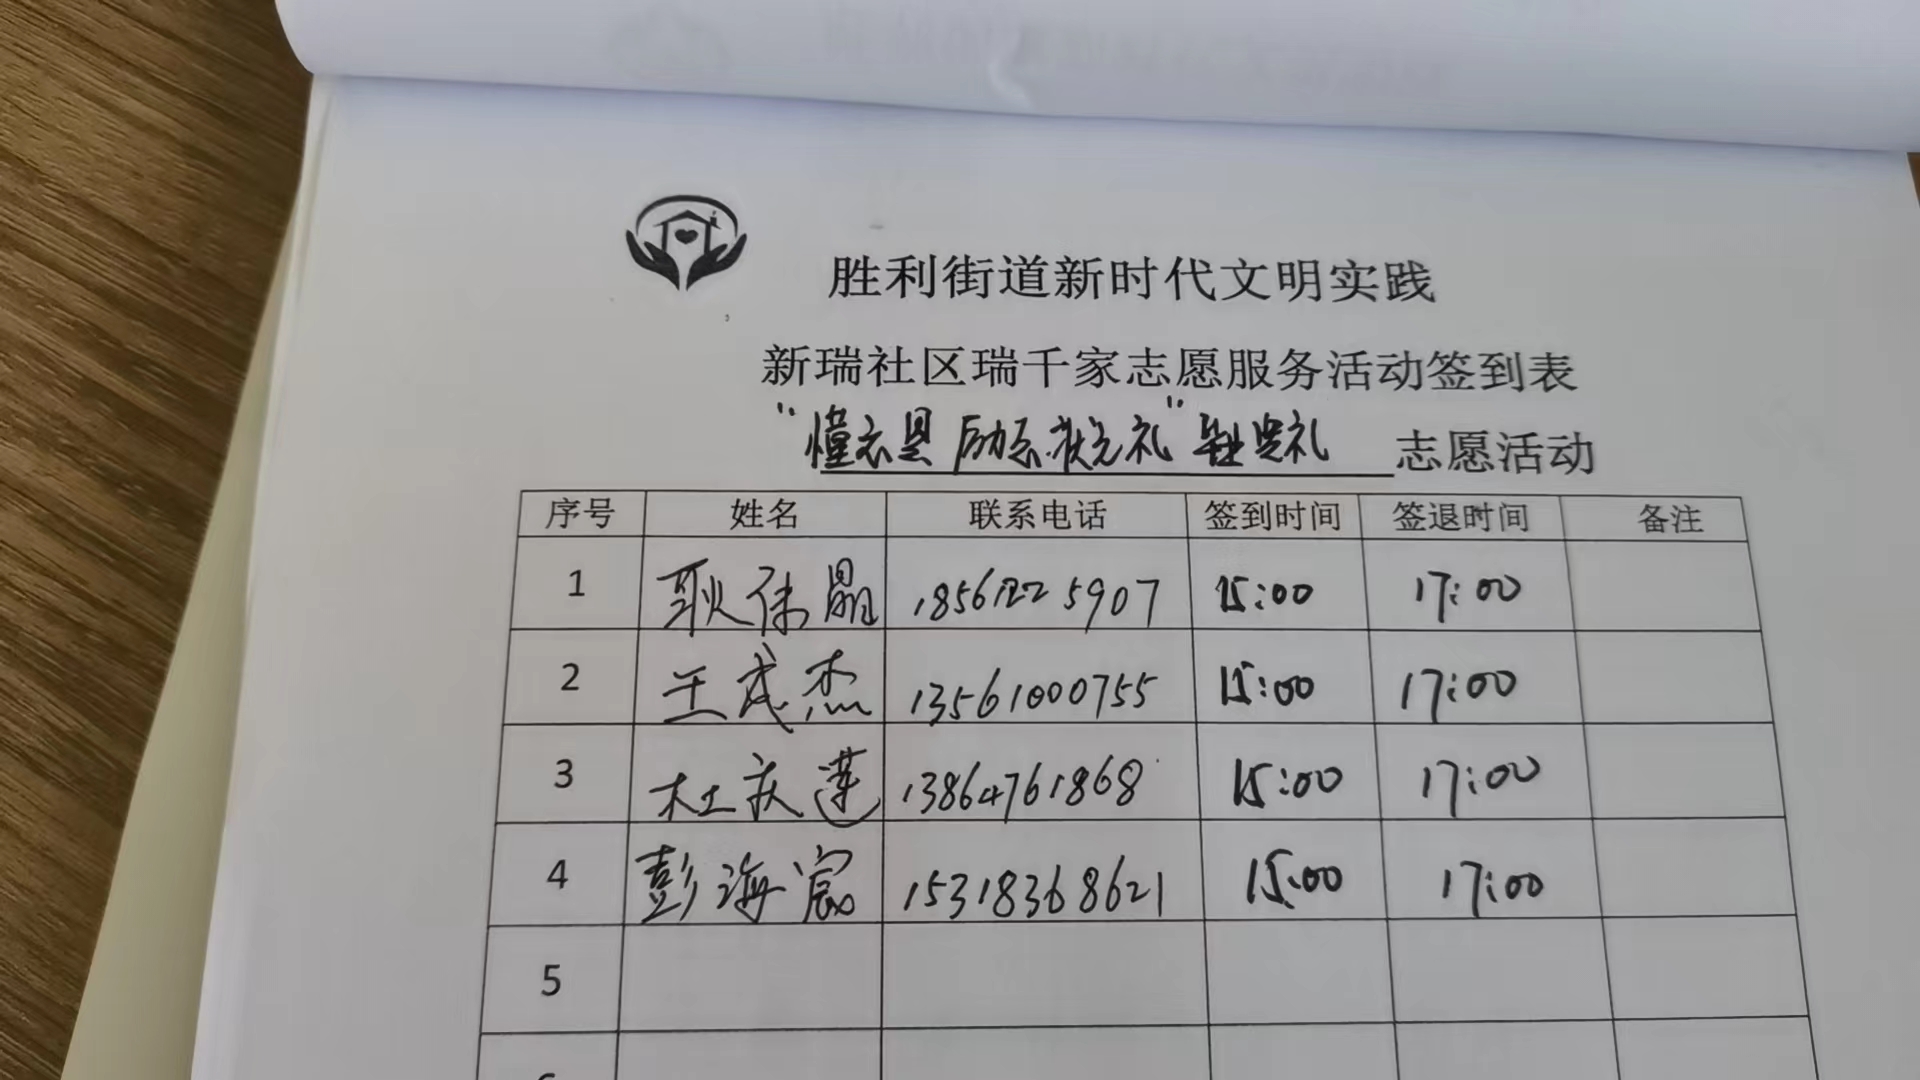 胜利街道新时代文明实践
新瑞社区瑞千家志愿服务活动签到表
“懂志愿 励志状元礼” 典礼 志愿活动
序号 姓名 联系电话 签到时间 签退时间 备注
1 耿保晶 18561225907 15:00 17:00
2 王成杰 13561000755 15:00 17:00
3 杜庆莲 13864761868 15:00 17:00
4 彭海宸 15318368621 15:00 17:00
5